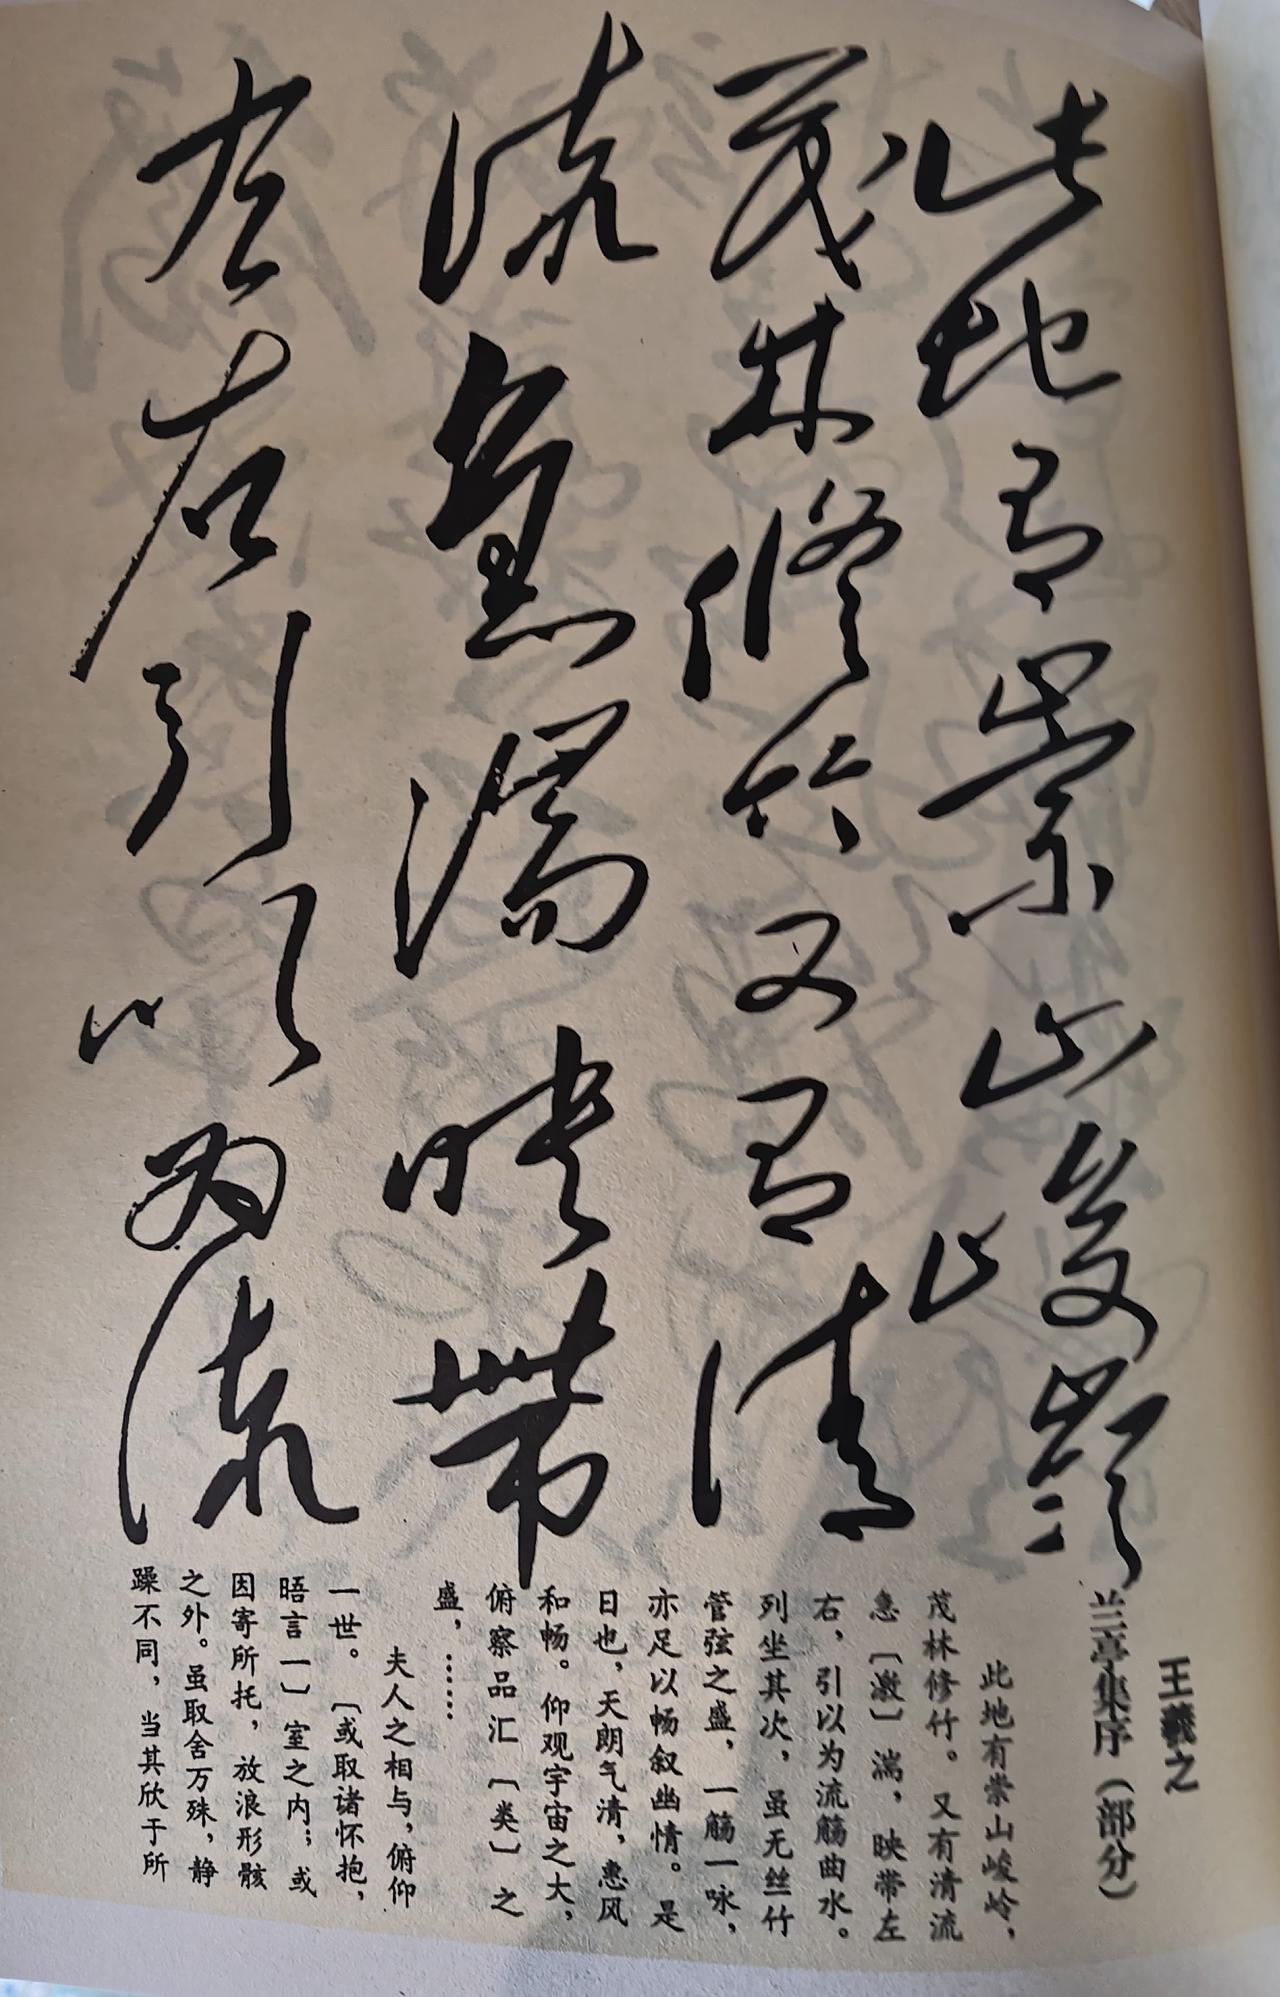 此地有崇山峻岭
茂林修竹又有清
流急湍映带
左右引以为流
王羲之
兰亭集序（部分）
此地有崇山峻岭，
茂林修竹。又有清流
急〔激〕湍，映带左
右，引以为流觞曲水。
列坐其次，虽无丝竹
管弦之盛，一觞一咏，
亦足以畅叙幽情。是
日也，天朗气清，惠风
和畅。仰观宇宙之大，
俯察品汇〔类〕之
盛，……
夫人之相与，俯仰
一世。〔或取诸怀抱，
晤言一〕室之内；或
因寄所托，放浪形骸
之外。虽取舍万殊，静
躁不同，当其欣于所